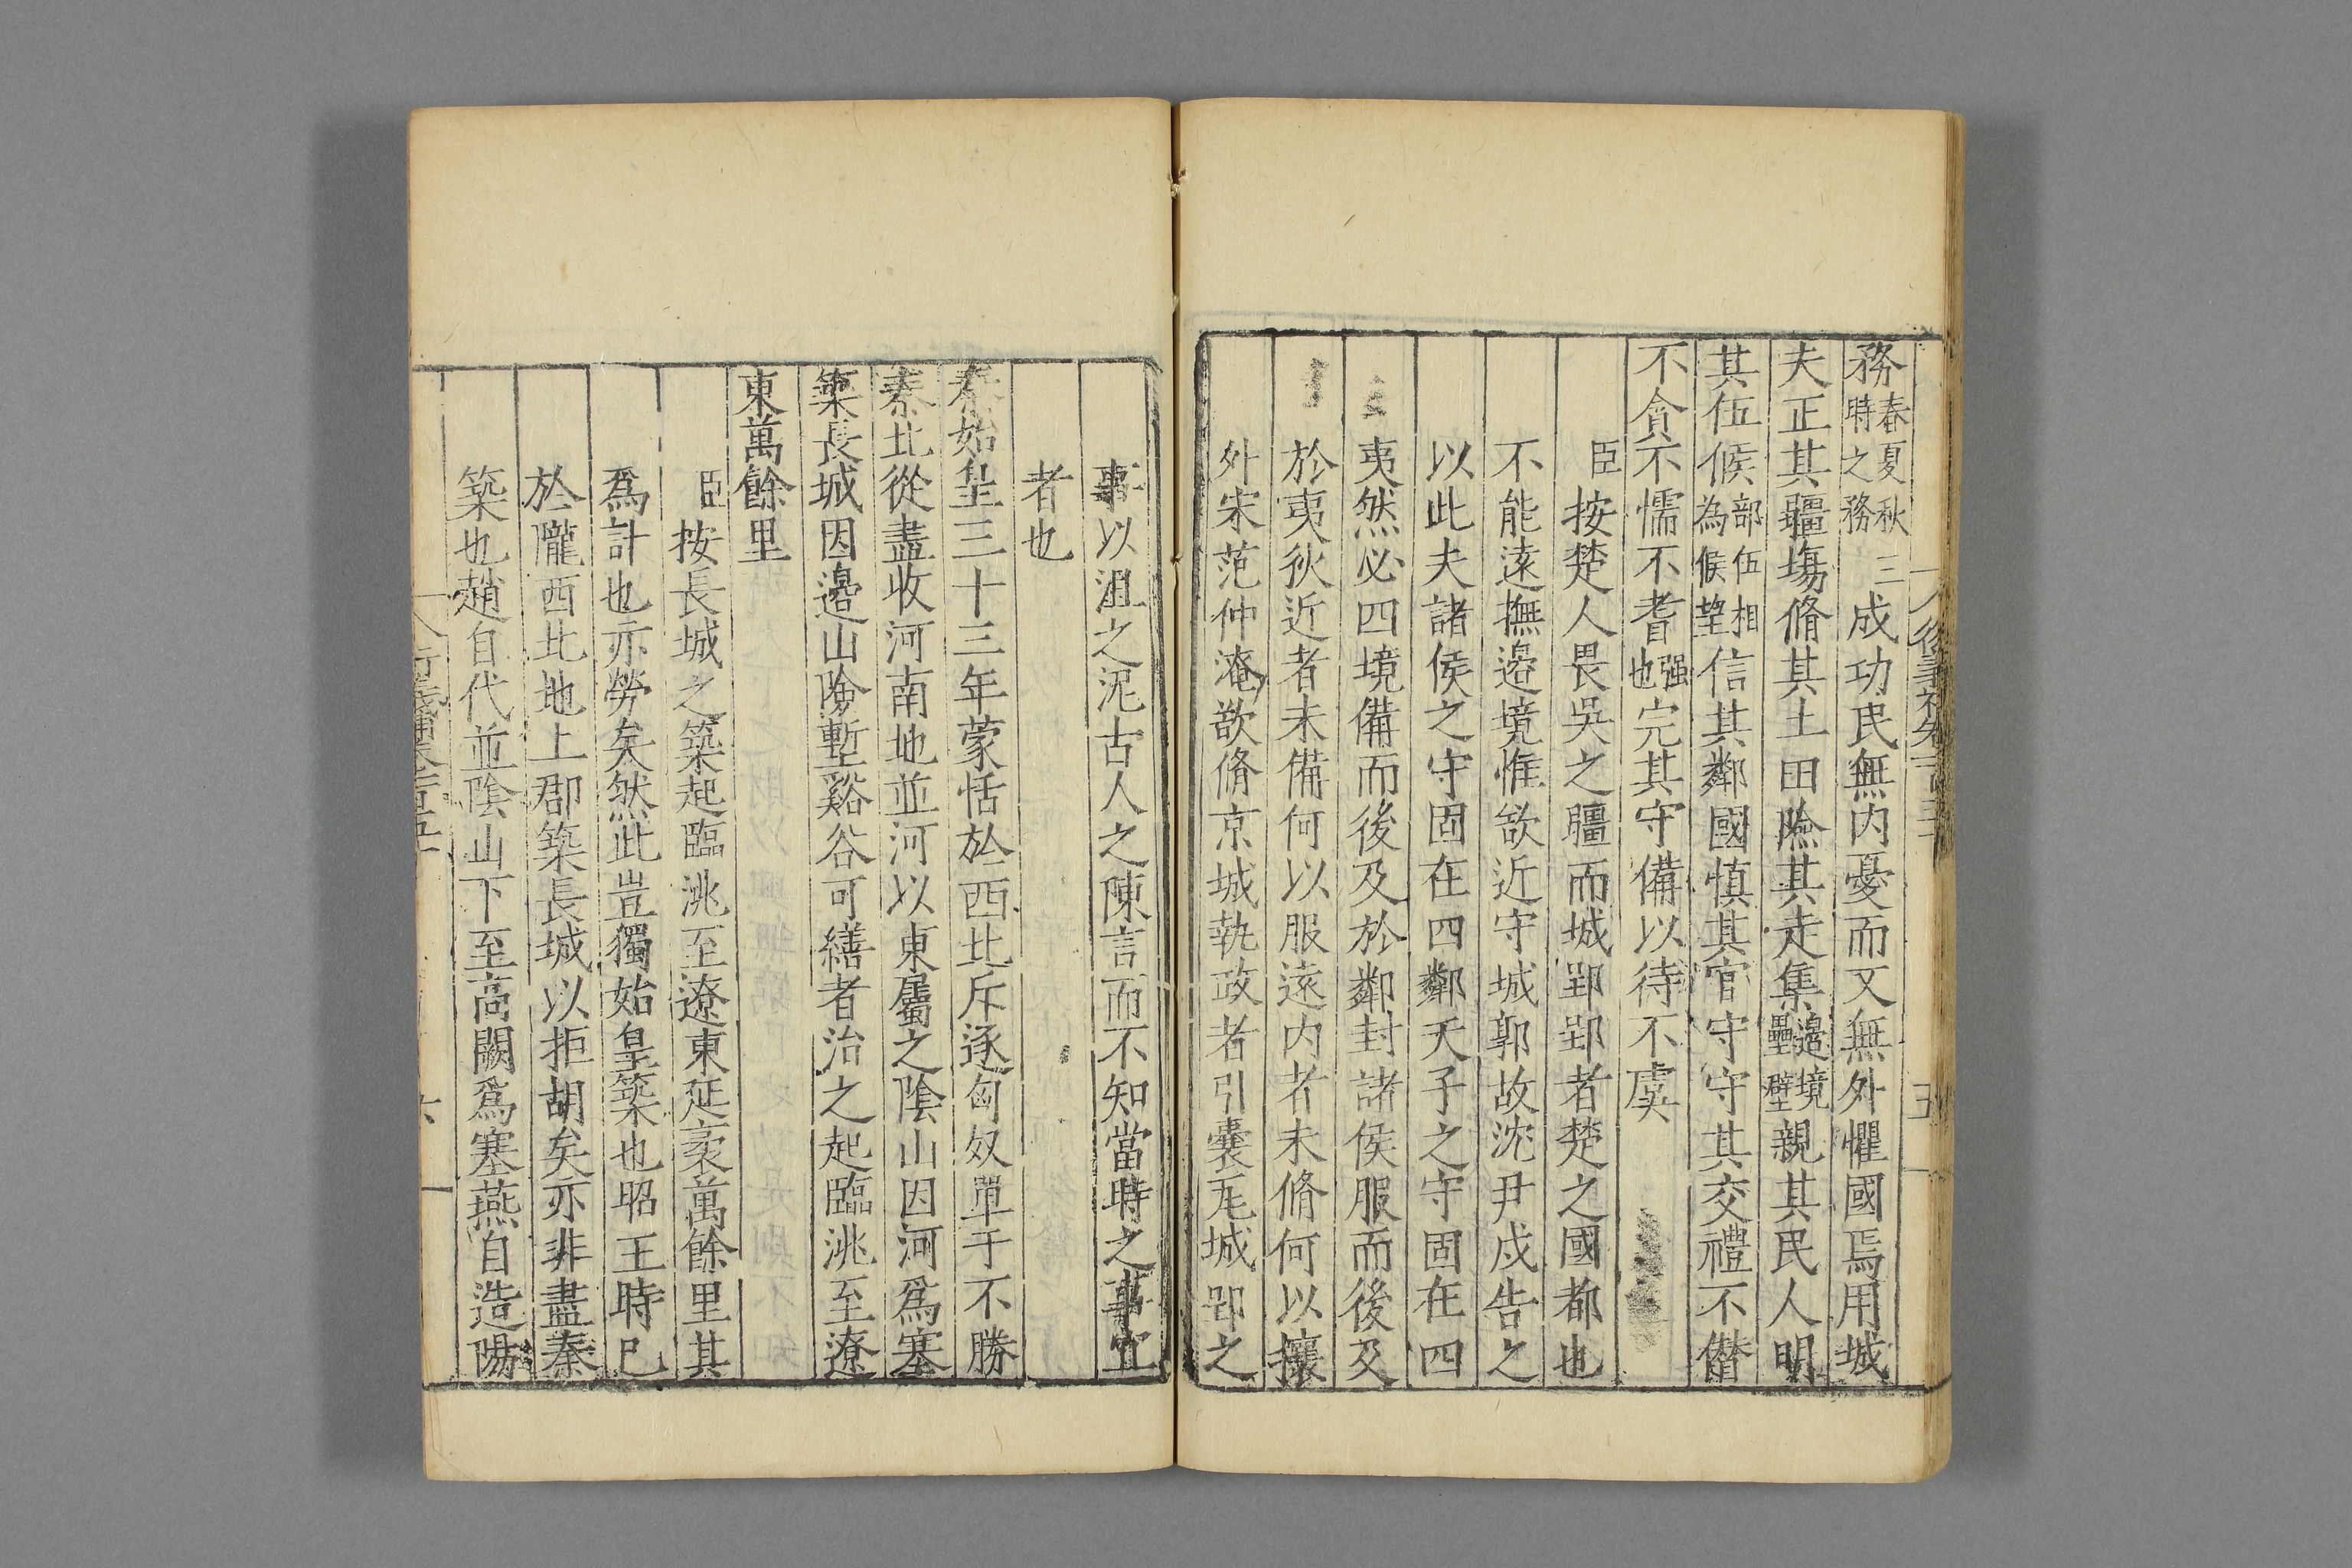 務春夏秋時之務三成功民無内憂而又無外懼國焉用城
夫正其疆場脩其土田險其走集邉境壘壁親其民人明
其伍候部伍相為候望信其鄰國慎其官守守其交禮不僣
不貪不懦不耆强也完其守備以待不虞
臣按楚人畏吳之疆而城郢郢者楚之國都也
不能逺撫邉境惟欲近守城郭故沈尹戍告之
以此夫諸侯之守固在四鄰天子之守固在四
夷然必四境備而後及於鄰封諸侯服而後及
於夷狄近者未備何以服逺内者未脩何以攘
外宋范仲淹欲脩京城執政者引囊瓦城郢之
事以沮之泥古人之陳言而不知當時之事宜
者也
秦始皇三十三年蒙恬於西北斥逐匈奴單于不勝
秦北從盡收河南地並河以東屬之隂山因河爲塞
築長城因邉山險塹谿谷可繕者治之起臨洮至遼
東萬餘里
臣按長城之築起臨洮至遼東延袤萬餘里其
爲計也亦勞矣然此豈獨始皇築也昭王時已
於隴西北地上郡築長城以拒胡矣亦非盡秦
築也趙自代並隂山下至高闕爲塞燕自造陽